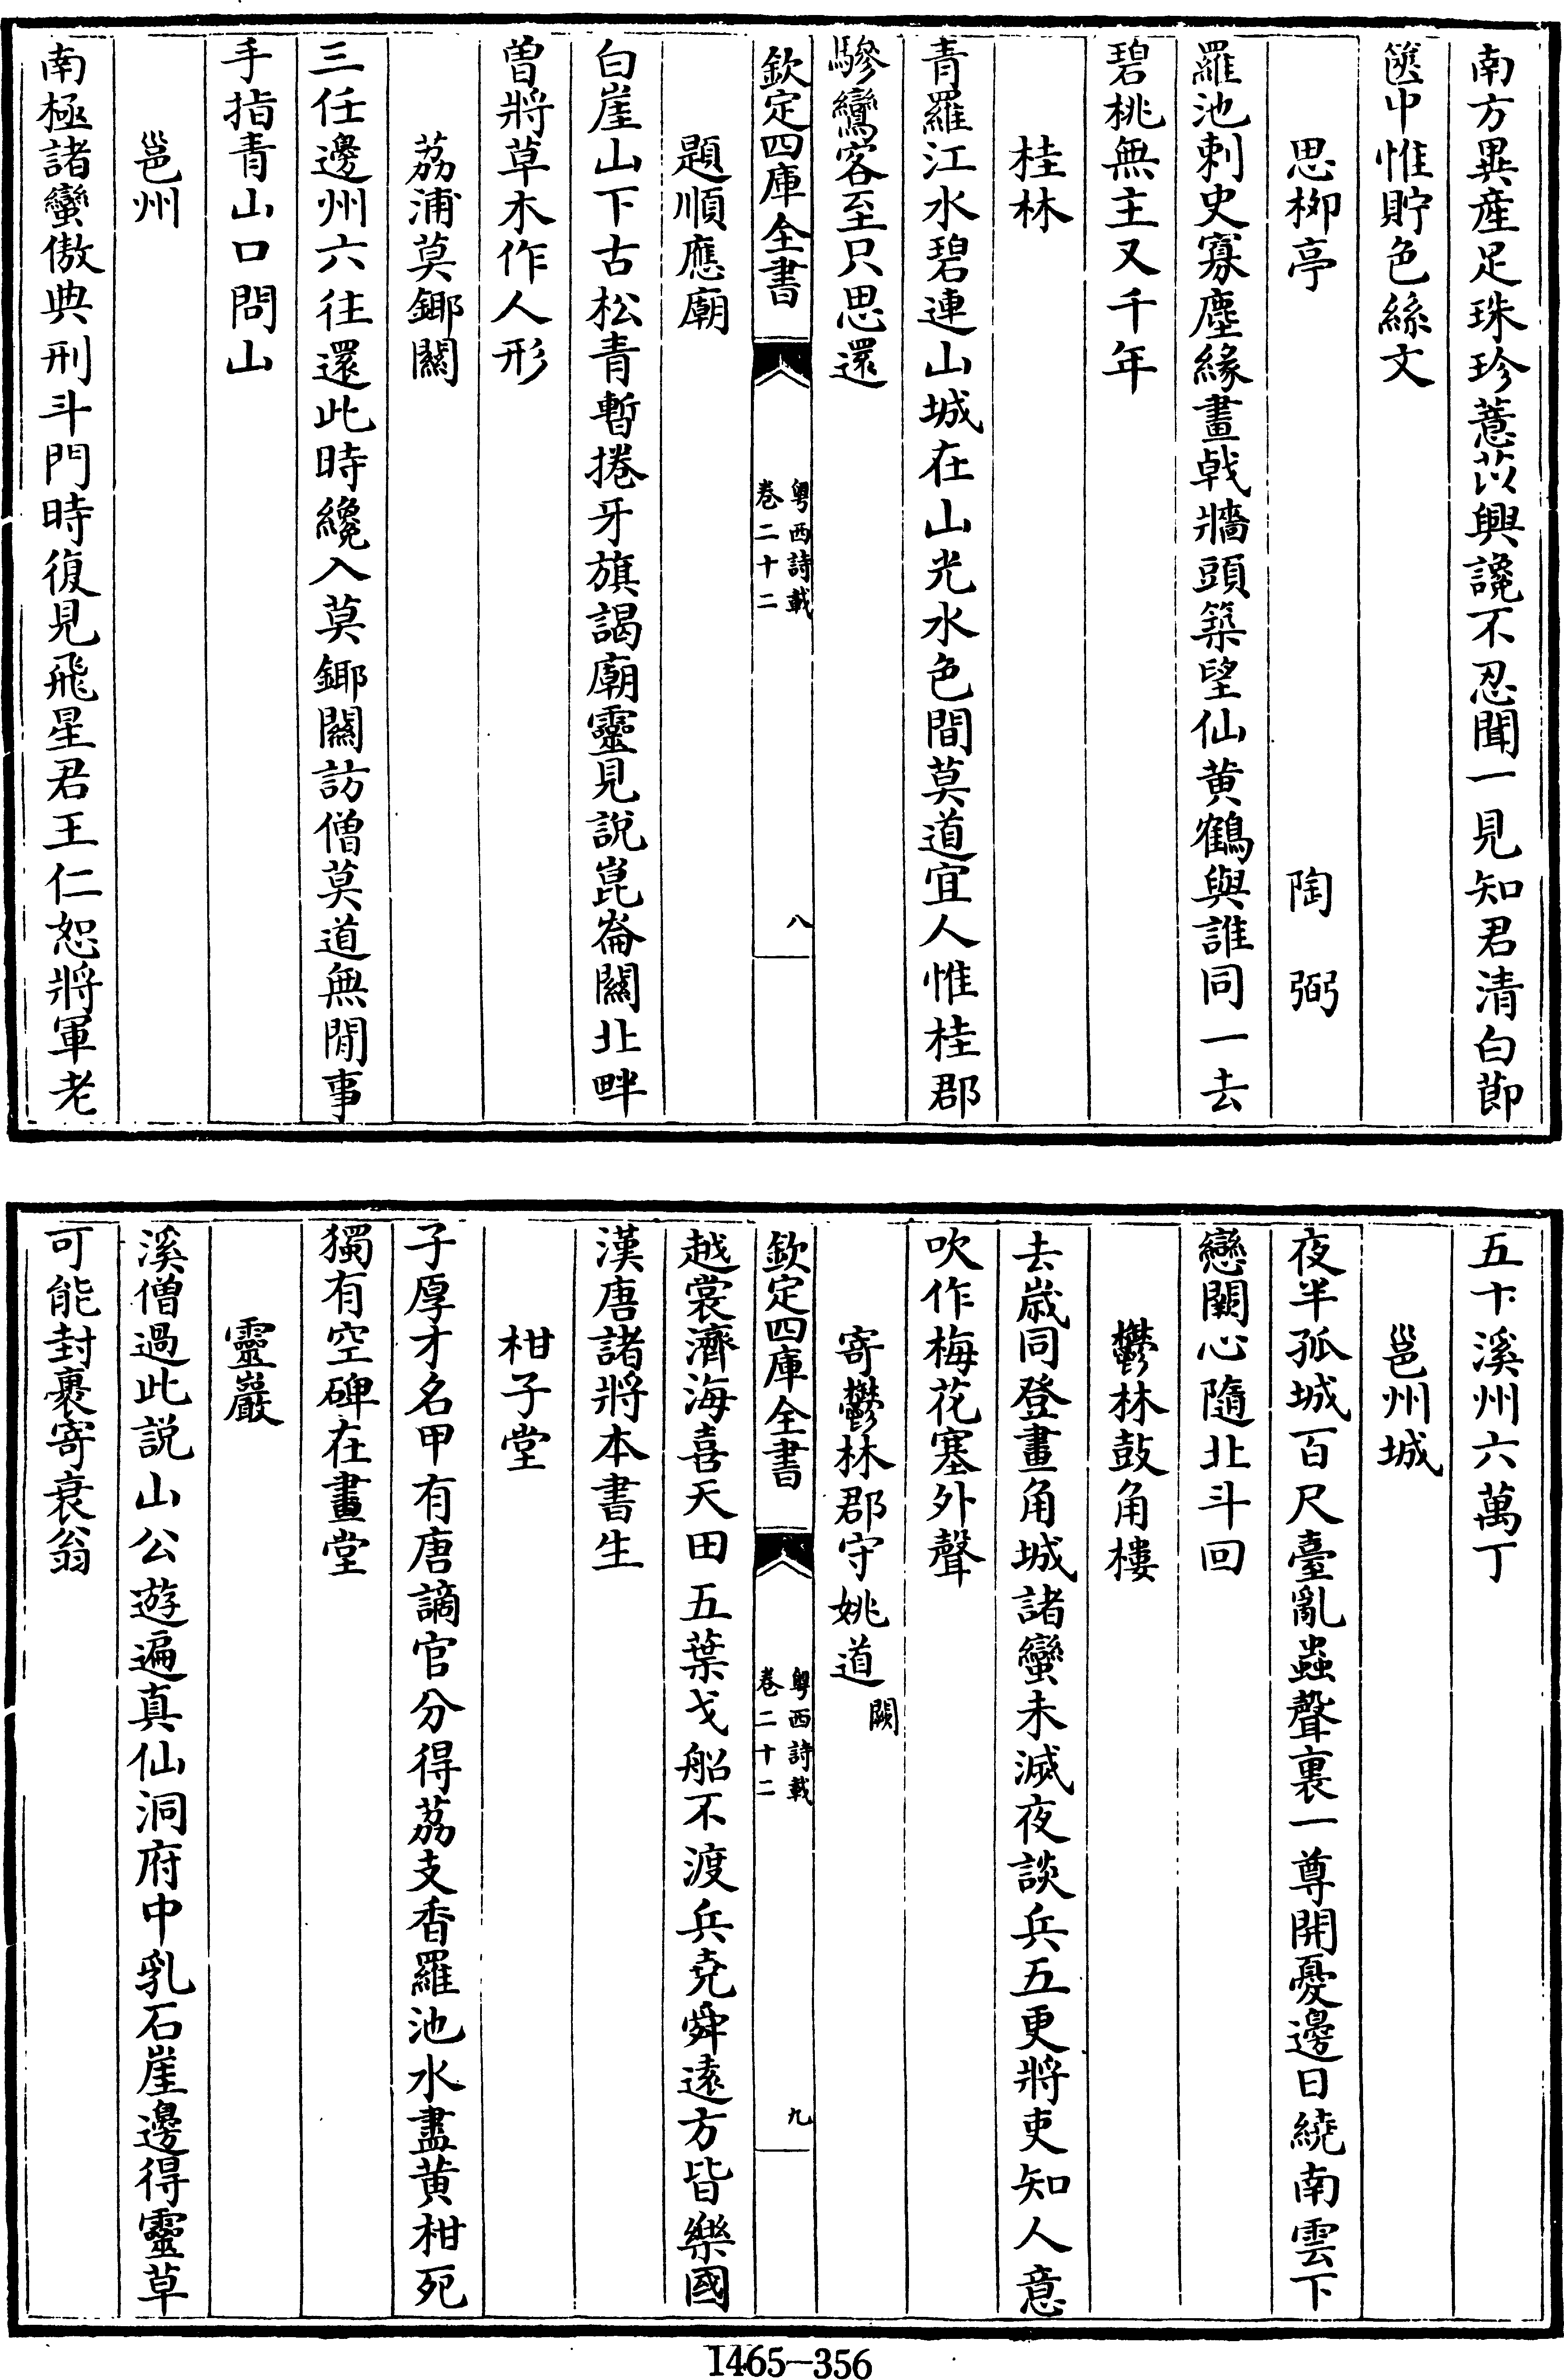 南方異産足珠珍薏苡興讒不忍聞一見知君清白節
篋中惟貯色絲文
思柳亭
陶弼
羅池刺史寡塵緣畫戟牆頭築望仙黄鶴與誰同一去
碧桃無主又千年
桂林
青羅江水碧連山城在山光水色間莫道宜人惟桂郡
驂鸞客至只思還
欽定四庫全書
粤西詩載
卷二十二
八
題順應廟
白崖山下古松青暫捲牙旗謁廟靈見説崑崙關北畔
曽將草木作人形
茘浦莫鎁關
三任邊州六往還此時纔入莫鎁關訪僧莫道無閒事
手指青山口問山
邕州
南極諸蠻傲典刑斗門時復見飛星君王仁恕將軍老
五十溪州六萬丁
邕州城
夜半孤城百尺臺亂蟲聲裏一尊開憂邊日繞南雲下
戀闕心隨北斗回
鬱林鼓角樓
去歳同登畫角城諸蠻未滅夜談兵五更將吏知人意
吹作梅花塞外聲
寄鬱林郡守姚道
闕
欽定四庫全書
粤西詩載
卷二十二
九
越裳濟海喜天田五葉戈船不渡兵堯舜遠方皆樂國
漢唐諸將本書生
柑子堂
子厚才名甲有唐謫官分得茘支香羅池水盡黄柑死
獨有空碑在畫堂
靈巖
溪僧過此説山公遊遍真仙洞府中乳石崖邊得靈草
可能封裹寄衰翁
1465-356